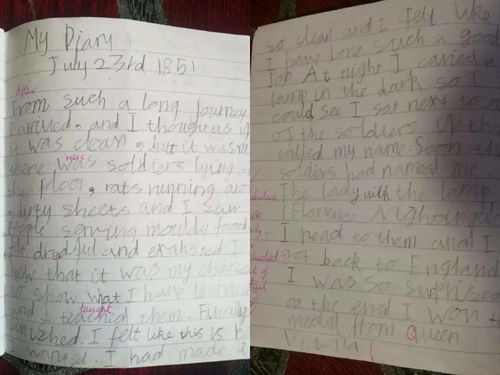 My Diary
July 23rd 1851
After
From such a long journey
I arrived, and I thought as if
it was clean, but it wasn't
there was soldiers lying on
the floor, rats running aro
dirty sheets and I saw
people serving mouldy food
dredful and exahsted I
that it was my chance
to show what I have learne
taught
and I teached them. Finally
I felt like this is
I had made
so clean and I felt like
I have done such a good
job. At night I caried a
lamp in the dark so I
could see I sat next to
of the soldiers
called my name. Soon the
soldiers had named me
The lady with the lamp
(Florence Nightingale
I read to them and I
got back to England
I was so suprised
at the end I won
medal from Queen
Victoria!